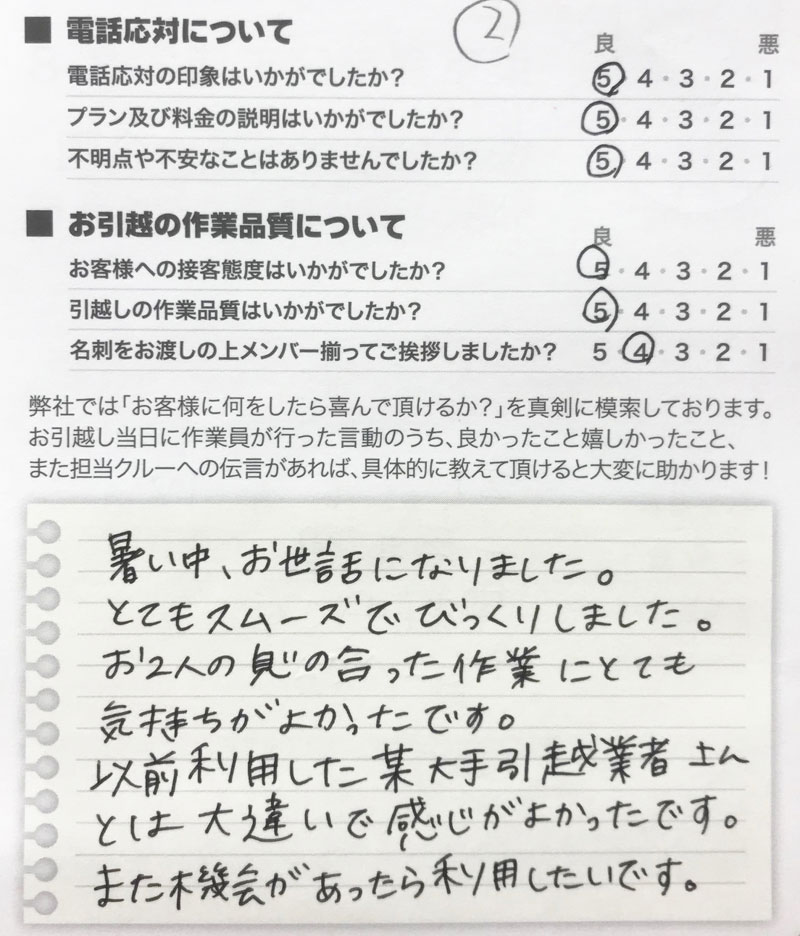 ■ 電話応対について
②
良 悪
電話応対の印象はいかがでしたか? 5・4・3・2・1
プラン及び料金の説明はいかがでしたか? 5・4・3・2・1
不明点や不安なことはありませんでしたか? 5・4・3・2・1
■ お引越の作業品質について
良 悪
お客様への接客態度はいかがでしたか? 5・4・3・2・1
引越しの作業品質はいかがでしたか? 5・4・3・2・1
名刺をお渡しの上メンバー揃ってご挨拶しましたか? 5・4・3・2・1
弊社では「お客様に何をしたら喜んで頂けるか?」を真剣に模索しております。
お引越し当日に作業員が行った言動のうち、良かったこと嬉しかったこと、
また担当クルーへの伝言があれば、具体的に教えて頂けると大変に助かります!
暑い中、お世話になりました。
とてもスムーズでびっくりしました。
お2人の息の合った作業にとても
気持ちがよかったです。
以前利用した某大手引越業者さん
とは大違いで感じがよかったです。
また機会があったら利用したいです。